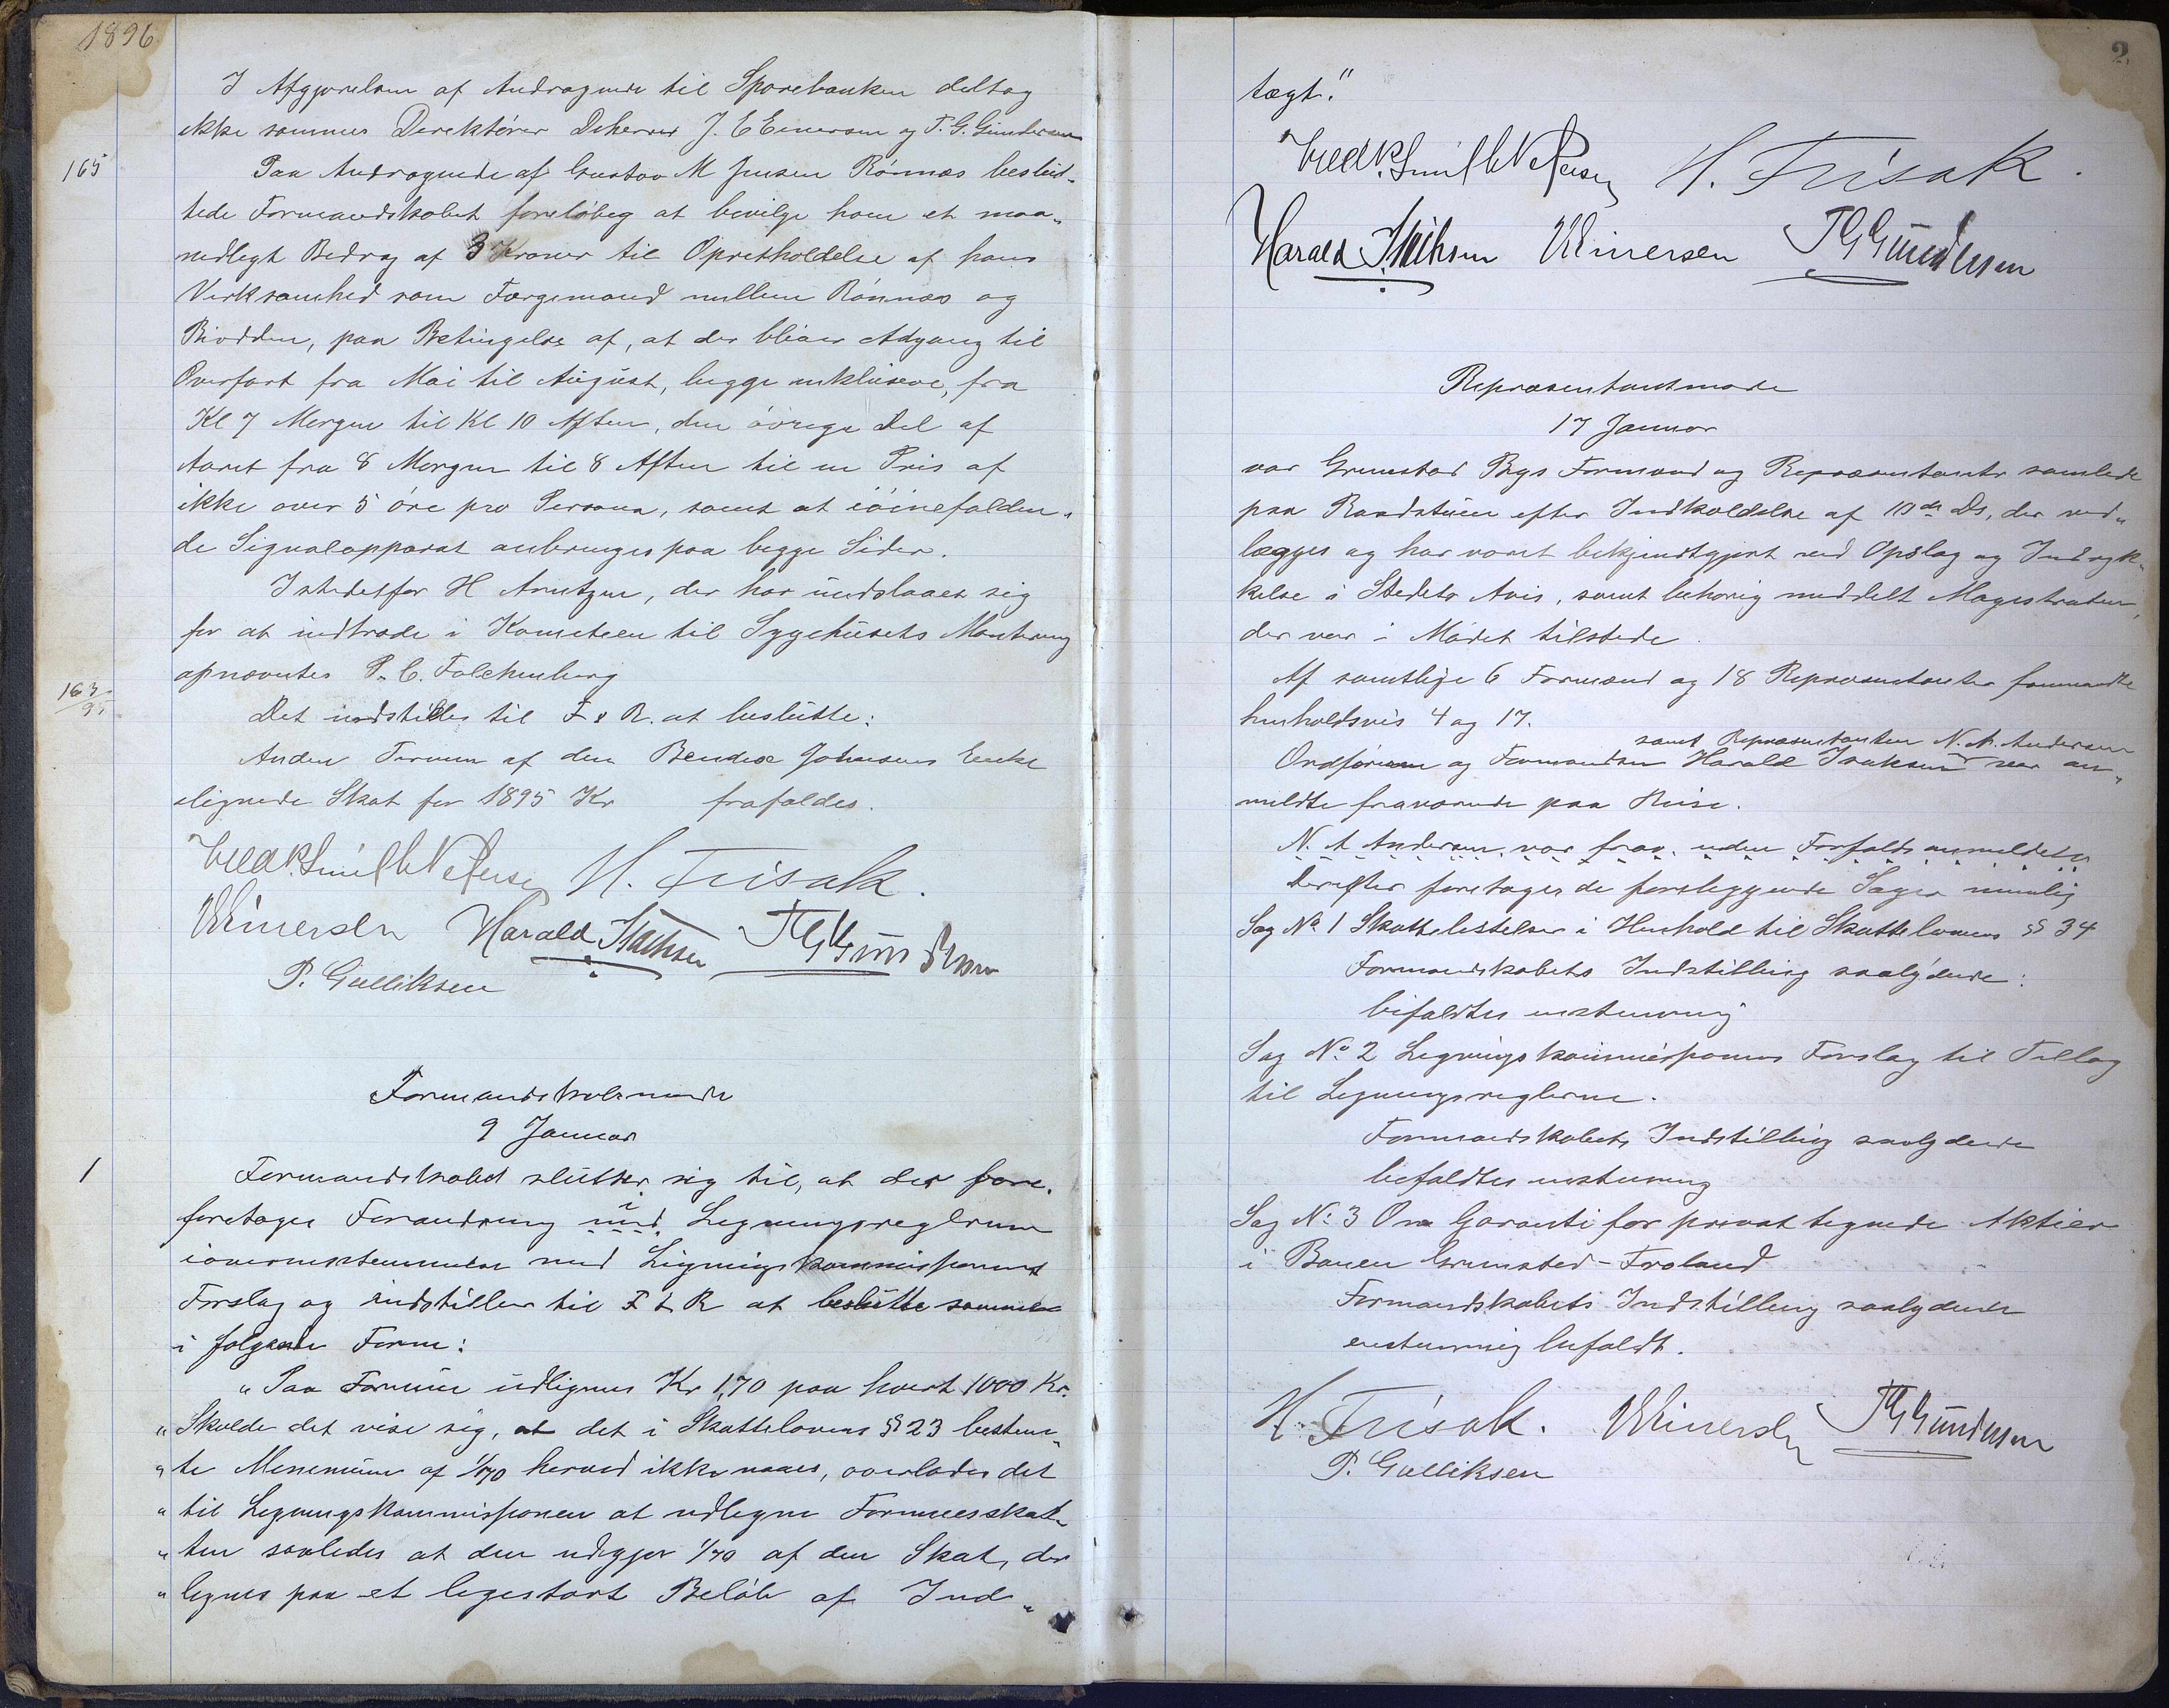 1896
I Afgjørelsen af Andragende til Sparebanken deltog
ikke sammes Direktører Dherrer J. E Evensen og T. G. Gundersen
165
Paa Andragende af Gustav M Jensen Rønnæs beslut-
tede Formandskabet foreløbig at bevilge ham et maa-
nedligt Bidrag af 3 Kroner til Opretholdelse af hans
Virksomhed som Færgemand mellem Rønnæs og
Biodden, paa Betingelse af, at der bliver Adgang til
Overfart fra Mai til August, begge inklusive, fra
Kl 7 Morgen til Kl 10 Aften, den øvrige Del af
Aaret fra 8 Morgen til 8 Aften til en Pris af
ikke over 5 øre pro Persona, samt at iøinefalden-
de Signalapparat anbringes paa begge Sider.
Istedetfor H Arntzen, der har undslaaet sig
for at indtræde i Komiteen til Sygehusets Montering
opnævntes P. C. Falchenberg
163/95
Det indstilles til F & R. at beslutte:
Anden Termin af den Bendix Johnsens Enke
ilignede Skat for 1895 Kr frafaldes.
Fredk. Smith Petersen H. Frisak.
Harald Isachsen TG Gundersen
P. Gulliksen
Formandskabsmøde
9 Januar
1
Formandskabet slutter sig til, at der fore-
foretages Forandring i Ligningsreglerne
ioverensstemmelse med Ligningskommissionens
Forslag og indstiller til F & R at beslutte samme
i følgende Form:
„ Paa Formue udlignes Kr 1,70 paa hvert 1000 Kr.
„ Skulde det vise sig, at det i Skattelovens § 23 bestem-
„ te Minimum af 1/70 herved ikke naaes, overlades det
„ til Ligningskommissionen at udligne Formuesskat-
„ ten saaledes at den udgjør 1/70 af den Skat, der
„ lignes paa et ligestort Beløb af Ind-
2.
tægt."
Fredk. Smith Petersen H. Frisak.
Harald Isachsen TG Gundersen
Repræsentantmøde
17 Januar
var Grimstad Bys Formænd og Repræsentanter samlede
paa Raadstuen efter Indkaldelse af 10de Ds, der ved-
lægges og har været bekjendtgjort ved Opslag og Indryk-
kelse i Stedets Avis, samt behørig meddelt Magistraten,
der var i Mødet tilstede.
Af samtlige 6 Formænd og 18 Repræsentanter fremmødte
henholdsvis 4 og 17.
samt Repræsentanten N. A. Andersen
Ordføreren og Formanden Harald Isaksen var an-
meldte fraværende paa Reise.
N. A Andersen var frav. uden Forfalds anmeldelse
Derefter foretoges de foreliggende Sager nemlig
Sag No 1 Skattelistelser i Henhold til Skattelovens § 34
Formandskabets Indstilling saalydende:
bifaldtes enstemmig
Sag No. 2 Ligningskommissionens Forslag til Tillæg
til Ligningsreglerne.
Formandskabets Indstilling saalydende
bifaldtes enstemmig
Sag No. 3 Om Garanti for privat tegnede Aktier
i Banen Grimstad-Froland
Formandskabets Indstilling saalydende
enstemmig bifaldt.
H. Frisak. TG Gundersen
P. Gulliksen